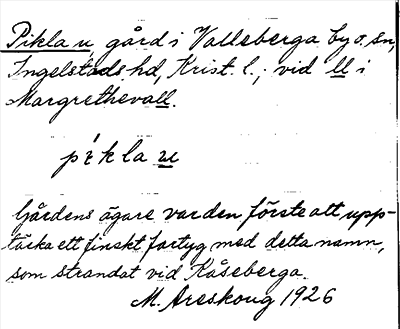 Pikla u, gård i Valleberga by o. sn,
Ingelstads hd, Krist. l.; vid ll i
Margrethevall.
píkla u
Gårdens ägare var den förste att upp-
täcka ett finskt fartyg med detta namn,
som strandat vid Kåseberga.
M. Areskoug 1926